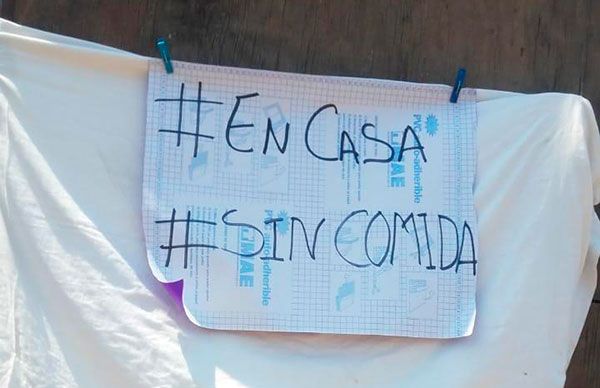 #EN CASA
#SIN COMIDA
PVC auto-adherible
LIMAE
PVC auto-adherible
LIMAE